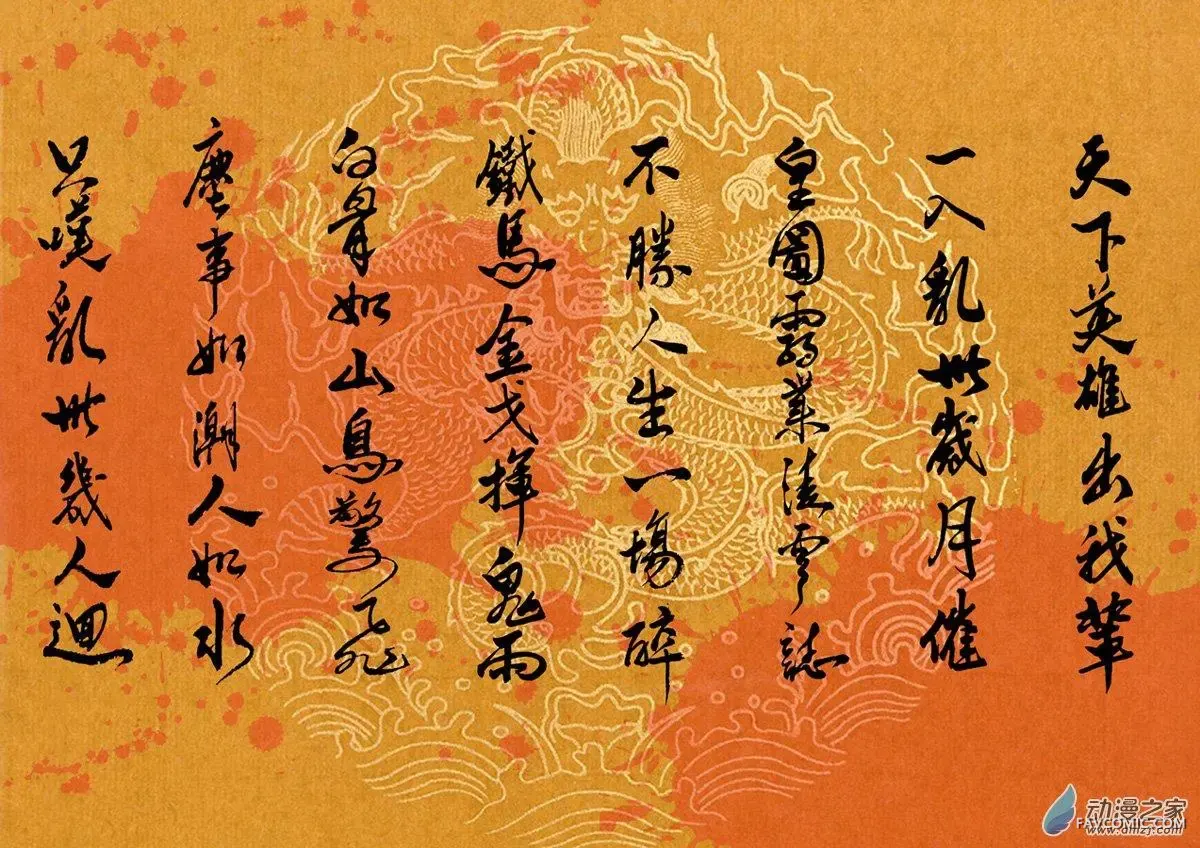 天下英雄出我輩
一入亂世歲月催
皇圖霸業淩雲誌
不勝人生一場醉
鐵馬金戈揮鬼雨
白骨如山鳥驚飛
塵事如潮人如水
只嘆亂世幾人迴
动漫之家
FAVCOMIC.COM
www.dmzj.com